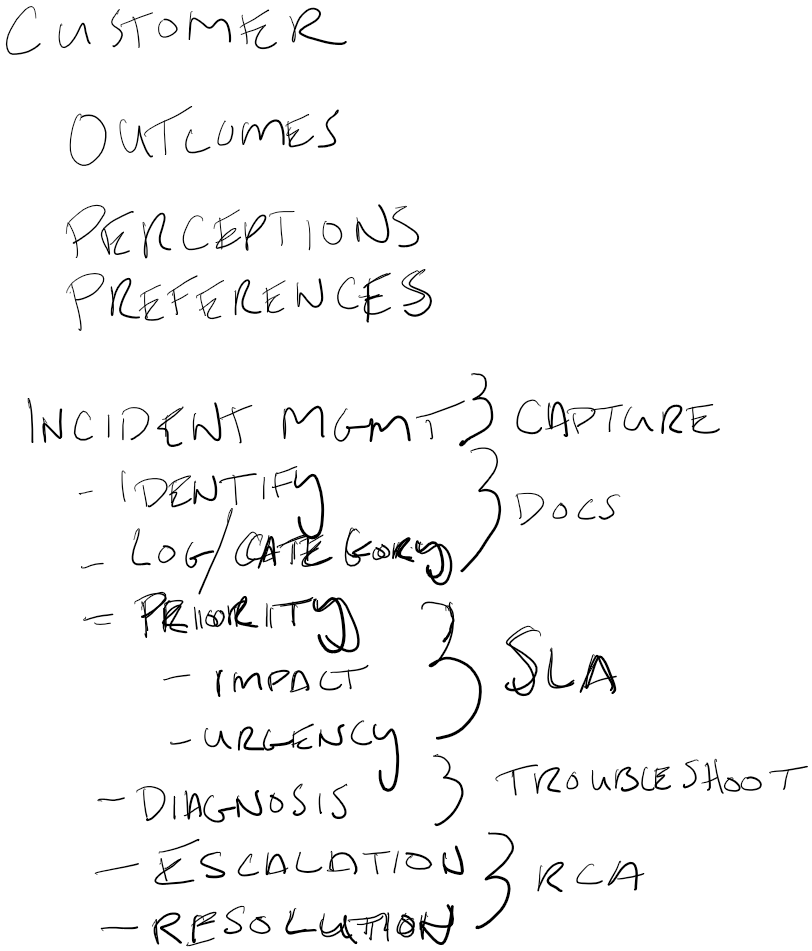 CUSTOMER
OUTCOMES
PERCEPTIONS
PREFERENCES
INCIDENT MGMT } CAPTURE
- IDENTIFY
} DOCS
- LOG/CATEGORY
- PRIORITY
- IMPACT
} SLA
- URGENCY
- DIAGNOSIS } TROUBLESHOOT
- ESCALATION
} RCA
- RESOLUTION